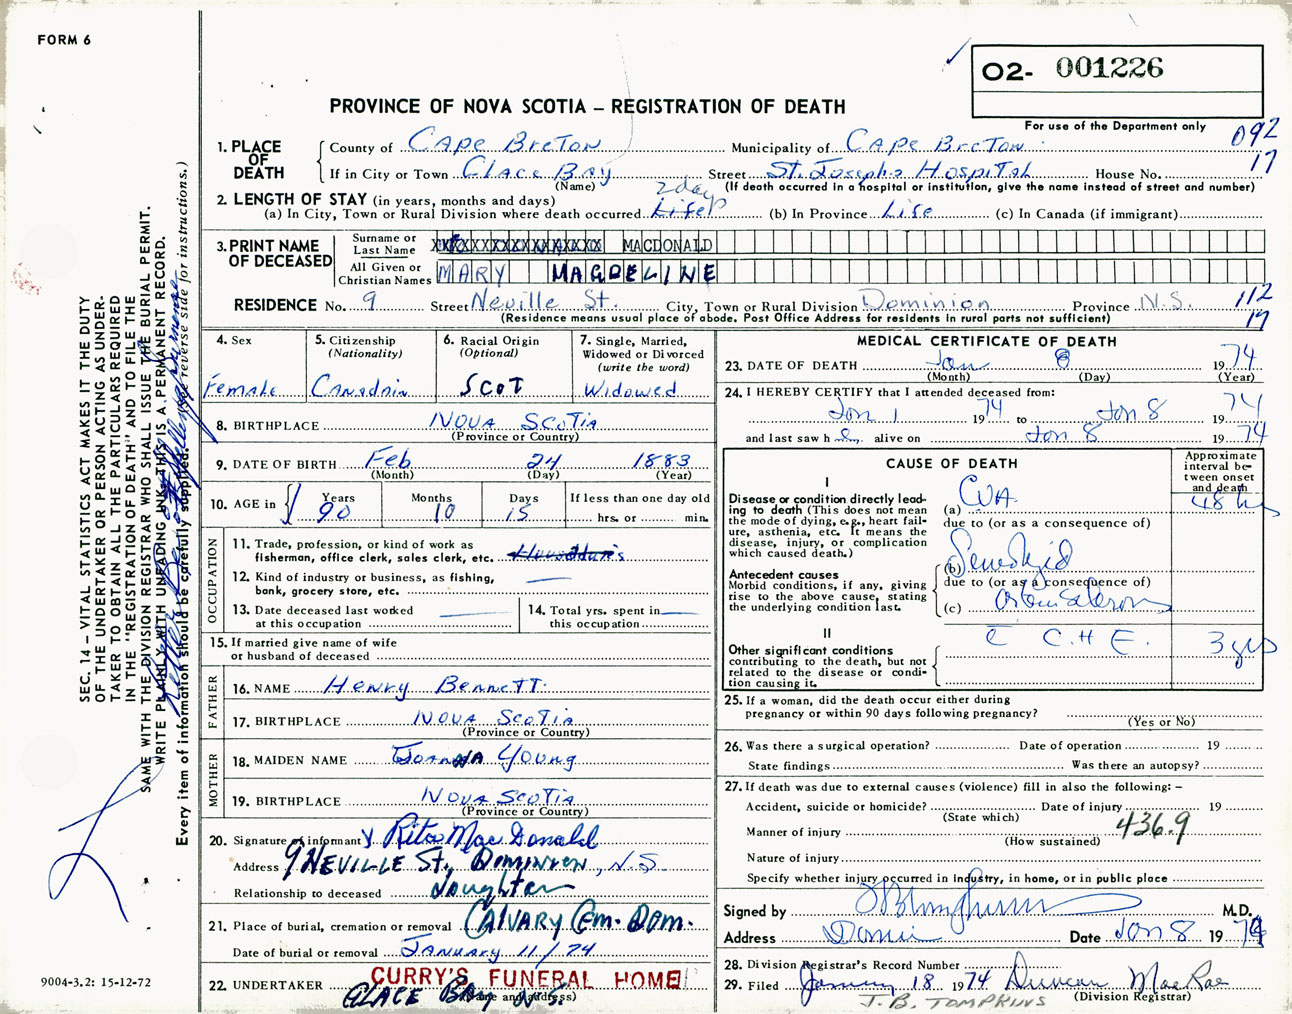 FORM 6
02- 001226
PROVINCE OF NOVA SCOTIA – REGISTRATION OF DEATH
For use of the Department only
092
17
1. PLACE OF DEATH
County of Cape Breton Municipality of Cape Breton
If in City or Town Glace Bay Street St. Josephs Hospital House No.
(Name) (If death occurred in a hospital or institution, give the name instead of street and number)
2. LENGTH OF STAY (in years, months and days)
2 days
(a) In City, Town or Rural Division where death occurred Life (b) In Province Life (c) In Canada (if immigrant)
3. PRINT NAME OF DECEASED
Surname or Last Name MACDONALD
All Given or Christian Names MARY MAGDELINE
RESIDENCE No. 9 Street Neville St. City, Town or Rural Division Dominion Province N.S.
(Residence means usual place of abode. Post Office Address for residents in rural parts not sufficient)
112
17
4. Sex
Female
5. Citizenship
(Nationality)
Canadain
6. Racial Origin
(Optional)
SCOT
7. Single, Married, Widowed or Divorced
(write the word)
Widowed
8. BIRTHPLACE Nova Scotia
(Province or Country)
9. DATE OF BIRTH Feb 24 1883
(Month) (Day) (Year)
10. AGE in Years Months Days If less than one day old
90 10 15 hrs. or min.
OCCUPATION
11. Trade, profession, or kind of work as
fisherman, office clerk, sales clerk, etc.
12. Kind of industry or business, as fishing,
bank, grocery store, etc.
13. Date deceased last worked
at this occupation
14. Total yrs. spent in
this occupation
15. If married give name of wife
or husband of deceased
FATHER
16. NAME Henry Bennett
17. BIRTHPLACE Nova Scotia
(Province or Country)
MOTHER
18. MAIDEN NAME Joanna Young
19. BIRTHPLACE Nova Scotia
(Province or Country)
20. Signature of informant Rita MacDonald
Address 9 Neville St., Dominion, N.S.
Relationship to deceased Daughter
21. Place of burial, cremation or removal Calvary Cem. Dom.
Date of burial or removal January 11/74
22. UNDERTAKER CURRY'S FUNERAL HOME
Glace Bay N.S.
(Name and address)
MEDICAL CERTIFICATE OF DEATH
23. DATE OF DEATH Jan 8 1974
(Month) (Day) (Year)
24. I HEREBY CERTIFY that I attended deceased from:
Jan 1 1974 to Jan 8 1974
and last saw h alive on Jan 8 1974
CAUSE OF DEATH
Approximate interval between onset and death
I
Disease or condition directly leading to death (This does not mean the mode of dying, e.g., heart failure, asthenia, etc. It means the disease, injury, or complication which caused death.)
(a) CVA 48 hrs
due to (or as a consequence of)
Antecedent causes
Morbid conditions, if any, giving rise to the above cause, stating the underlying condition last.
(b)
due to (or as a consequence of)
(c)
II
Other significant conditions
contributing to the death, but not related to the disease or condition causing it.
C.H.F. 3 yrs
25. If a woman, did the death occur either during
pregnancy or within 90 days following pregnancy?
(Yes or No)
26. Was there a surgical operation? Date of operation 19
State findings Was there an autopsy?
27. If death was due to external causes (violence) fill in also the following: –
Accident, suicide or homicide? Date of injury 19
(State which)
Manner of injury 436.9
(How sustained)
Nature of injury
Specify whether injury occurred in Industry, in home, or in public place
Signed by M.D.
Address Date Jan 8 1974
28. Division Registrar's Record Number
29. Filed January 18 1974 Duncan MacRae
(Division Registrar)
J.B. TOMPKINS
SEC. 14 – VITAL STATISTICS ACT MAKES IT THE DUTY
OF THE UNDERTAKER OR PERSON ACTING AS UNDER-
TAKER TO OBTAIN ALL THE PARTICULARS REQUIRED
IN THE "REGISTRATION OF DEATH" AND TO FILE THE
SAME WITH THE DIVISION REGISTRAR WHO SHALL ISSUE THE BURIAL PERMIT.
WRITE PLAINLY WITH UNFADING INK. THIS IS A PERMANENT RECORD.
Every item of information should be carefully supplied. (See reverse side for instructions.)
9004-3.2: 15-12-72